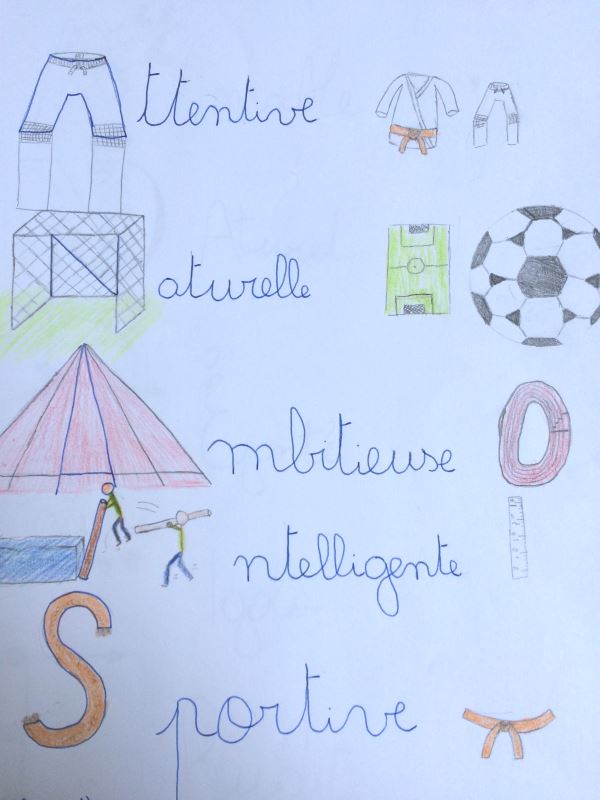 Attentive
Naturelle
Ambitieuse
Intelligente
Sportive